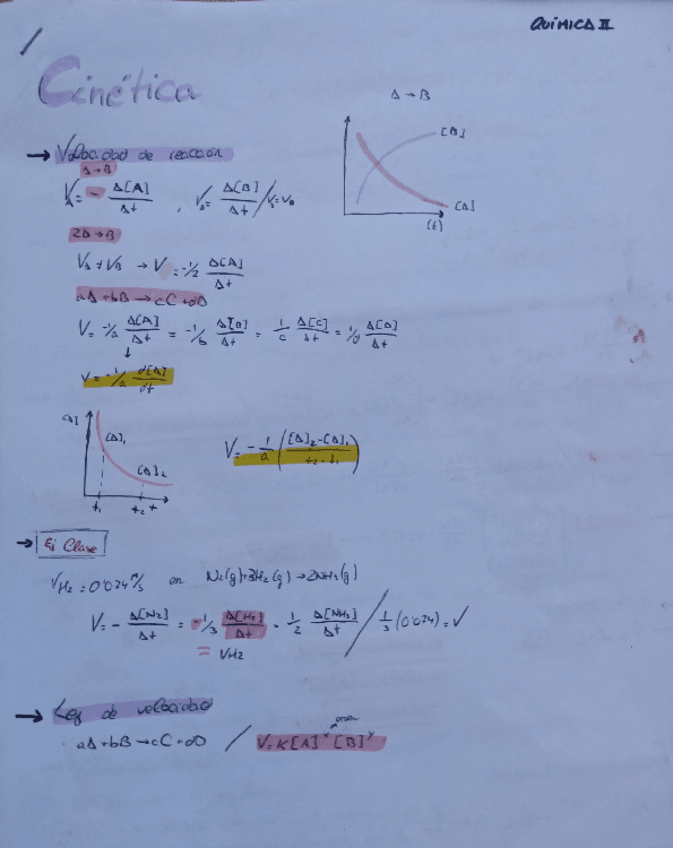 QUÍMICA II
Cinética
A → B
→ Velocidad de reacción
A → B
[B]
[A]
(t)
V_A = - Δ[A]/Δt , V_B = Δ[B]/Δt / V_A = V_B
2A → B
V_A ≠ V_B → V = -1/2 Δ[A]/Δt
aA + bB → cC + dD
V = -1/a Δ[A]/Δt = -1/b Δ[B]/Δt = 1/c Δ[C]/Δt = 1/d Δ[D]/Δt
↓
V = -1/a d[A]/dt
[A]
[A]₁
[A]₂
t₁ t₂ t
V = -1/a ([A]₂-[A]₁ / t₂-t₁)
→ Ej Clave
V_H₂ = 0'074 M/s en N₂(g)+3H₂(g) → 2NH₃(g)
V = - Δ[N₂]/Δt = -1/3 Δ[H₂]/Δt = 1/2 Δ[NH₃]/Δt / 1/3 (0'074) = V
= V_H2
→ Ley de velocidad
orden
aA + bB → cC + dD / V = K[A]ˣ[B]ʸ